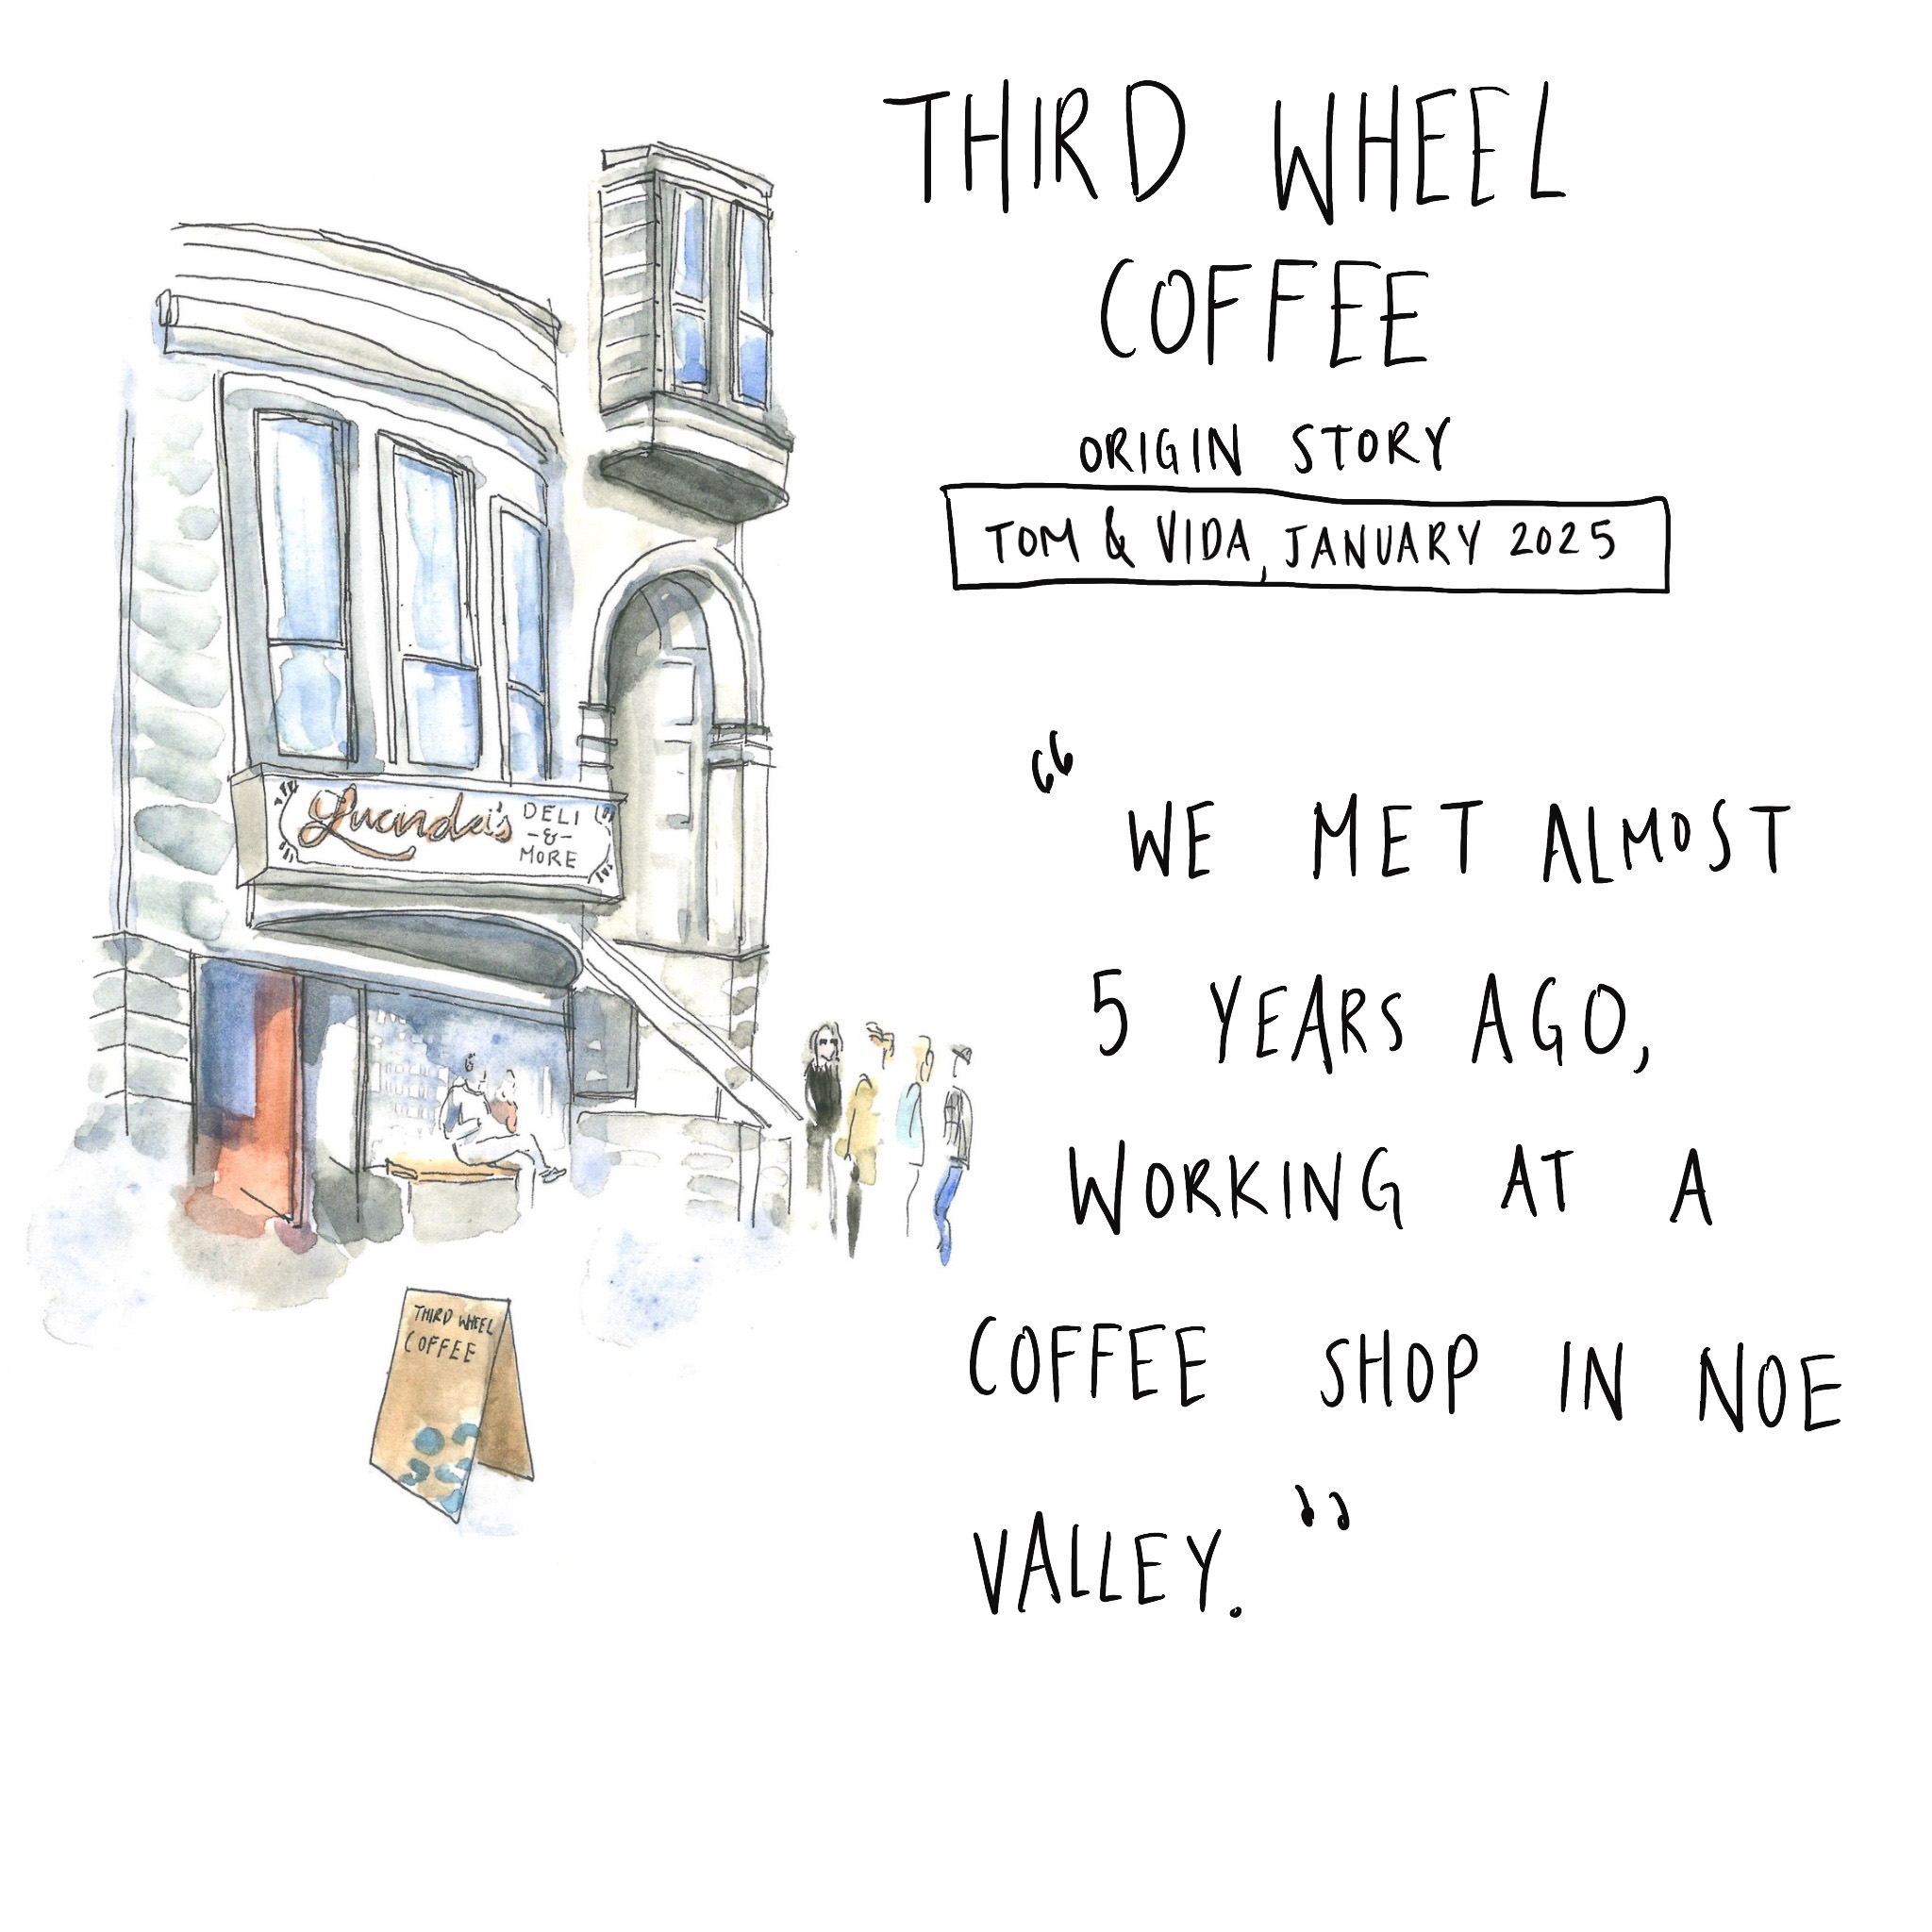 THIRD WHEEL
COFFEE
ORIGIN STORY
TOM & VIDA, JANUARY 2025
“WE MET ALMOST
5 YEARS AGO,
WORKING AT A
COFFEE SHOP IN NOE
VALLEY.”
Lucinda's DELI
-&-
MORE
THIRD WHEEL
COFFEE